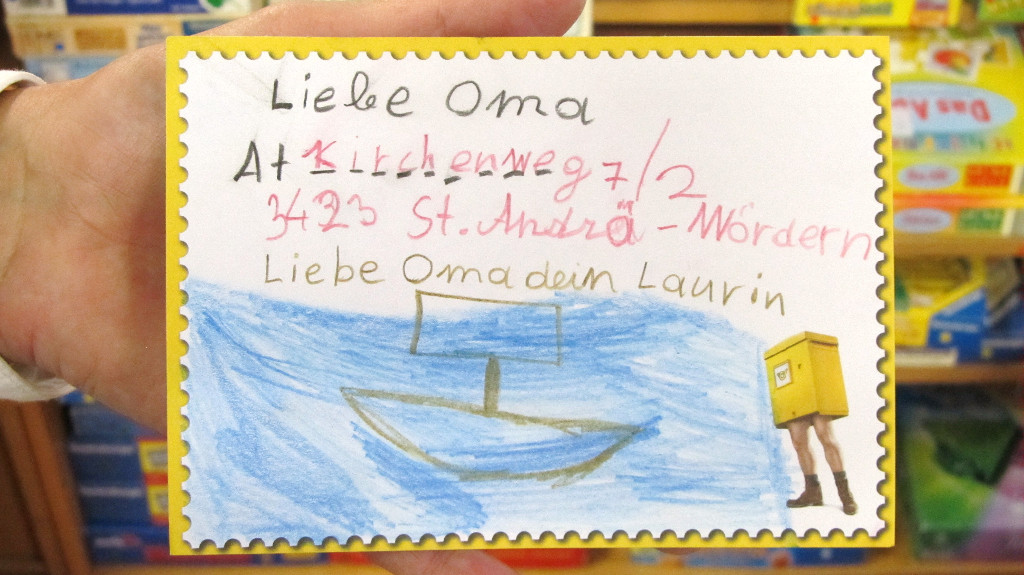 Liebe Oma
At Kirchenweg 7/2
3423 St. Andrä - Mördern
Liebe Oma dein Laurin
Das Au